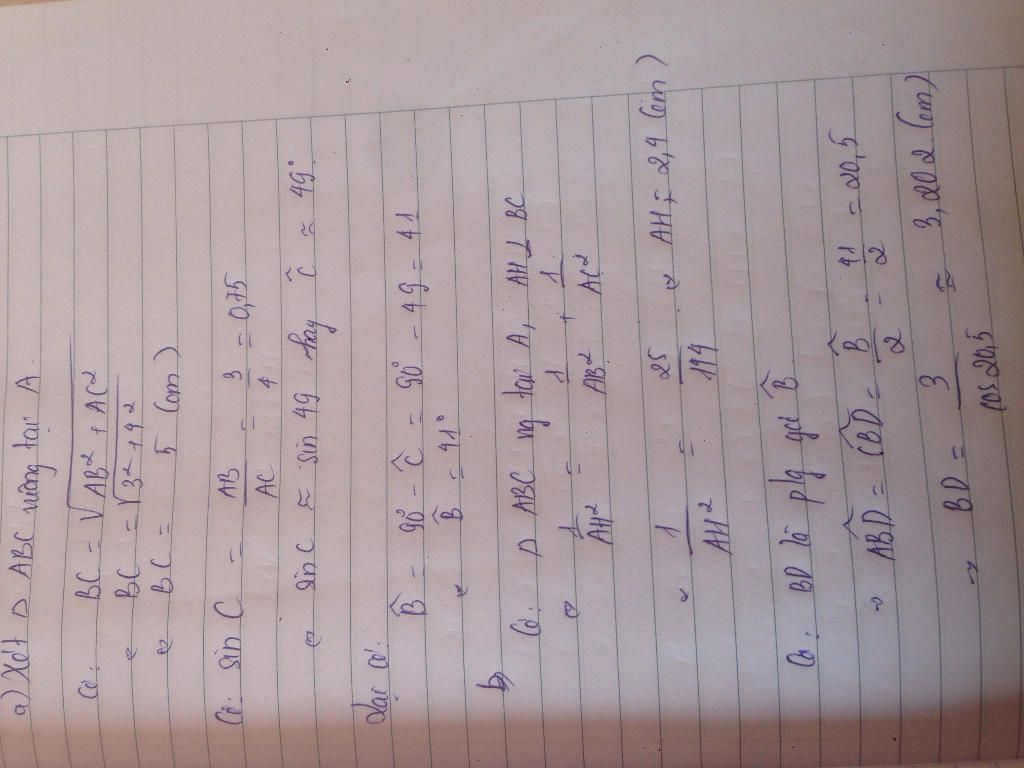 a) Xét △ ABC vuông tại A
Có: BC = √AB² + AC²
⇔ BC = √3² + 4²
⇔ BC = 5 (cm)
Có: sin C = AB/AC = 3/4 = 0,75
⇔ sin C ≈ sin 49 hay Ĉ ≈ 49°
Lại có:
B̂ = 90° - Ĉ = 90° - 49 = 41
⇔ B̂ = 41°
b,
Có: △ ABC vg tại A, AH ⊥ BC
⇔ 1/AH² = 1/AB² + 1/AC²
⇔ 1/AH² = 25/144 ⇔ AH = 2,4 (cm)
Có: BD là p/g góc B̂
⇒ ABD = CBD = B̂/2 = 41/2 = 20,5
⇒ BD = 3/cos 20,5 ≈ 3,202 (cm)